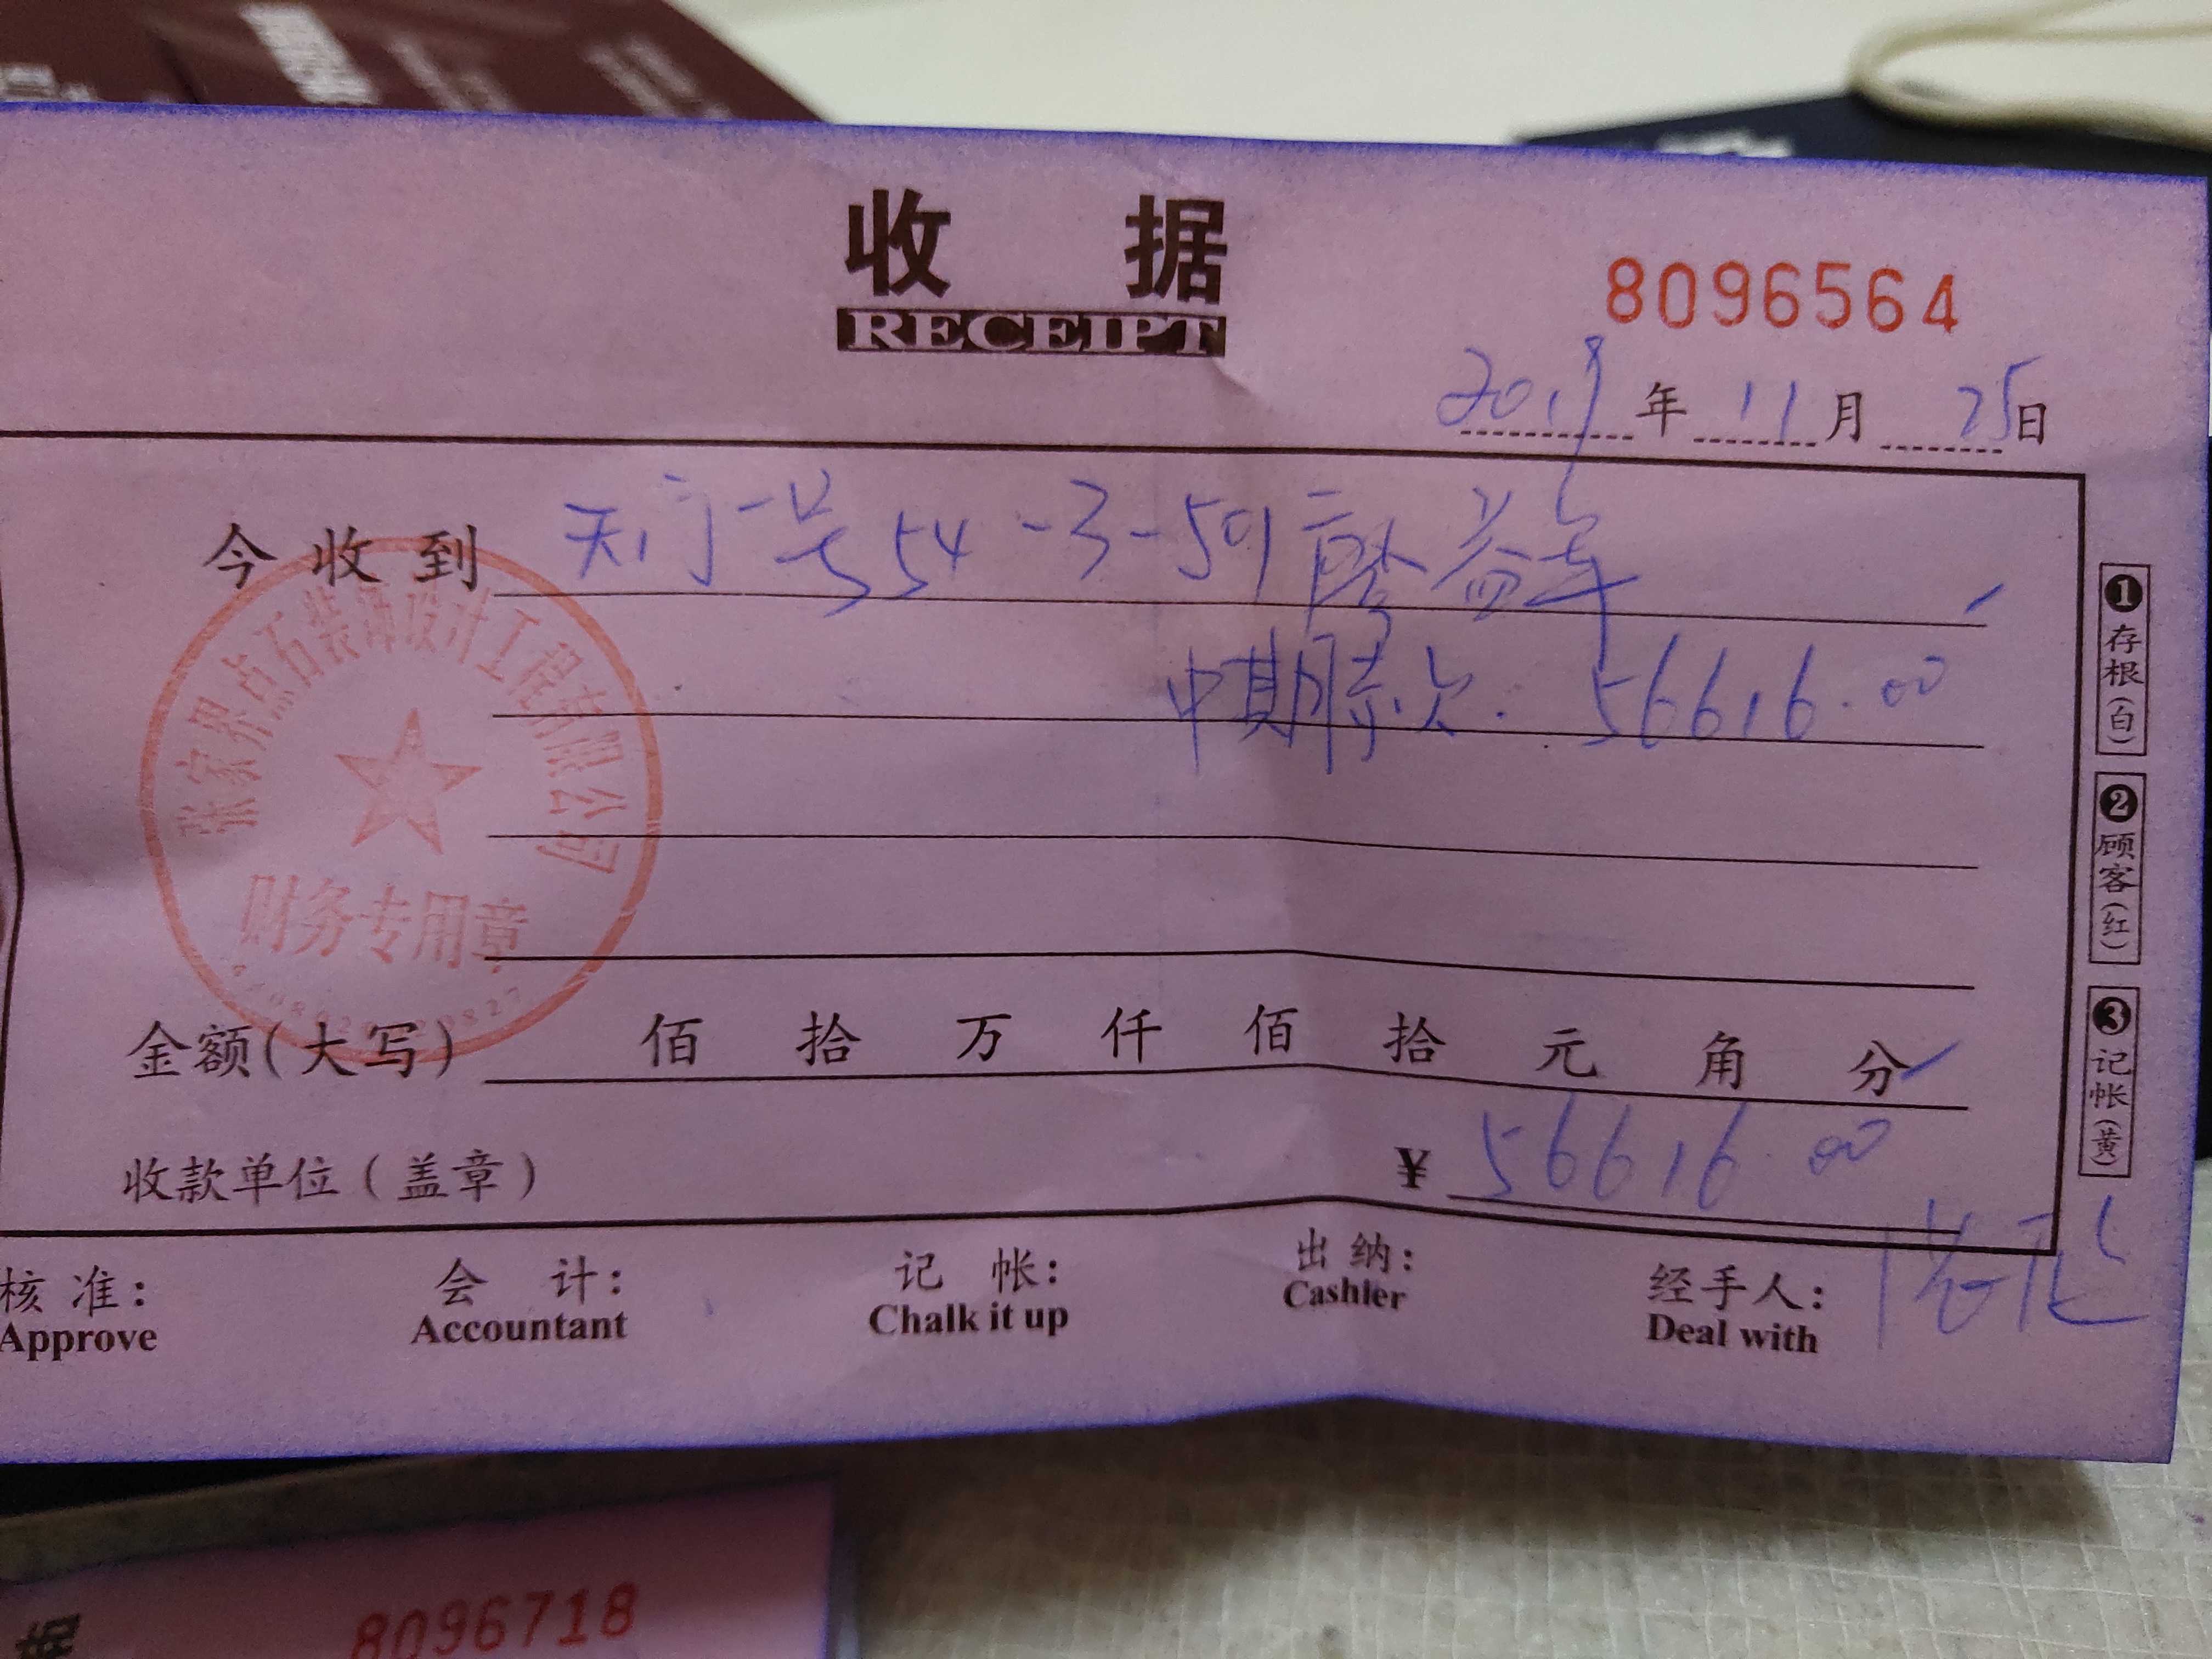 收 据
RECEIPT
8096564
2019年 11月 25日
今收到 天门一号54-3-501 益
中期 款. 56616.00
张家界点石装潢设计工程有限公司
财务专用章
金额(大写) 佰 拾 万 仟 佰 拾 元 角 分
收款单位(盖章) ¥ 56616.00
核准: 会 计: 记 帐: 出纳: 经手人:
Approve Accountant Chalk it up Cashier Deal with
❶存根(白)
❷顾客(红)
❸记帐(黄)
据 8096718